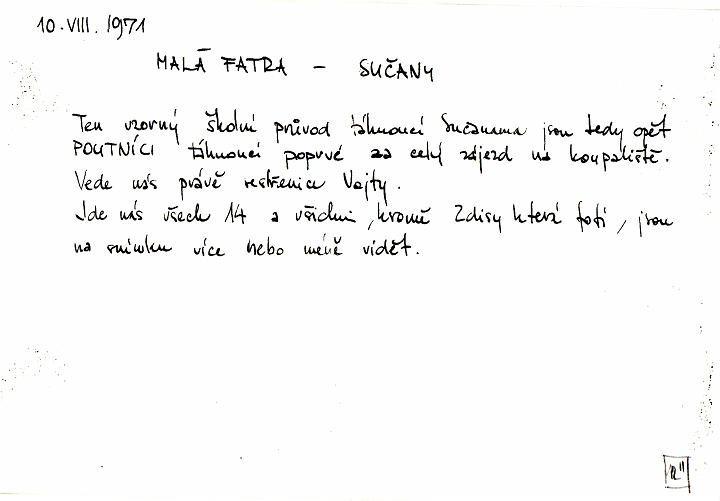 10.VIII.1971
MALÁ FATRA - SUČANY
Ten vzorný školní průvod táhnoucí Sučanama jsou tedy opět
POUTNÍCI táhnoucí poprvé za celý zájezd na koupaliště.
Vede nás právě sestřenice Vojty.
Jde nás všech 14 a všichni, kromě Zdisy která fotí, jsou
na snímku více nebo méně vidět.